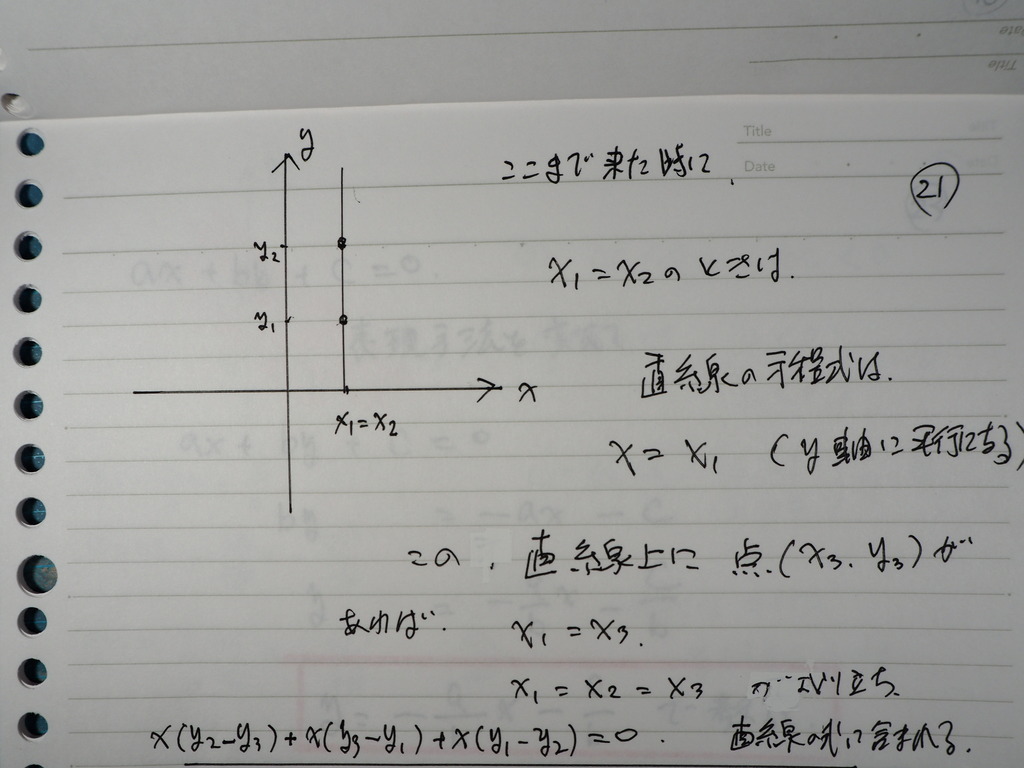 Title
Date
ここまで来た時に、
21
y
y₂
y₁
x
x₁=x₂
x₁=x₂のときは、
直線の方程式は、
x=x₁ (y軸に平行になる)
この、直線上に 点(x₃、y₃)が
あれば、 x₁=x₃、
x₁=x₂=x₃ が成り立ち、
x(y₂-y₃)+x(y₃-y₁)+x(y₁-y₂)=0. 直線の式に含まれる。